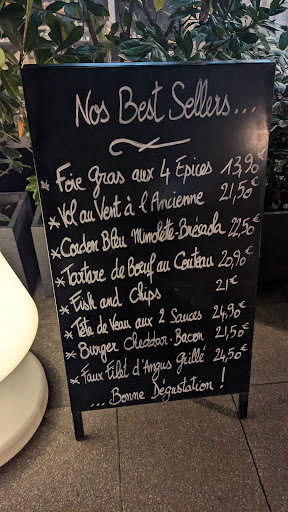 Nos Best Sellers...
* Foie Gras aux 4 Epices 13,90€
* Vol au Vent à l'Ancienne 21,50€
* Cordon Bleu Mimolette-Brésaola 22,50€
* Tartare de Boeuf au Couteau 20,90€
* Fish and Chips 21€
* Tête de Veau aux 2 Sauces 24,90€
* Burger Cheddar-Bacon 21,50€
* Faux Filet d'Angus Grillé 24,50€
... Bonne Dégustation !